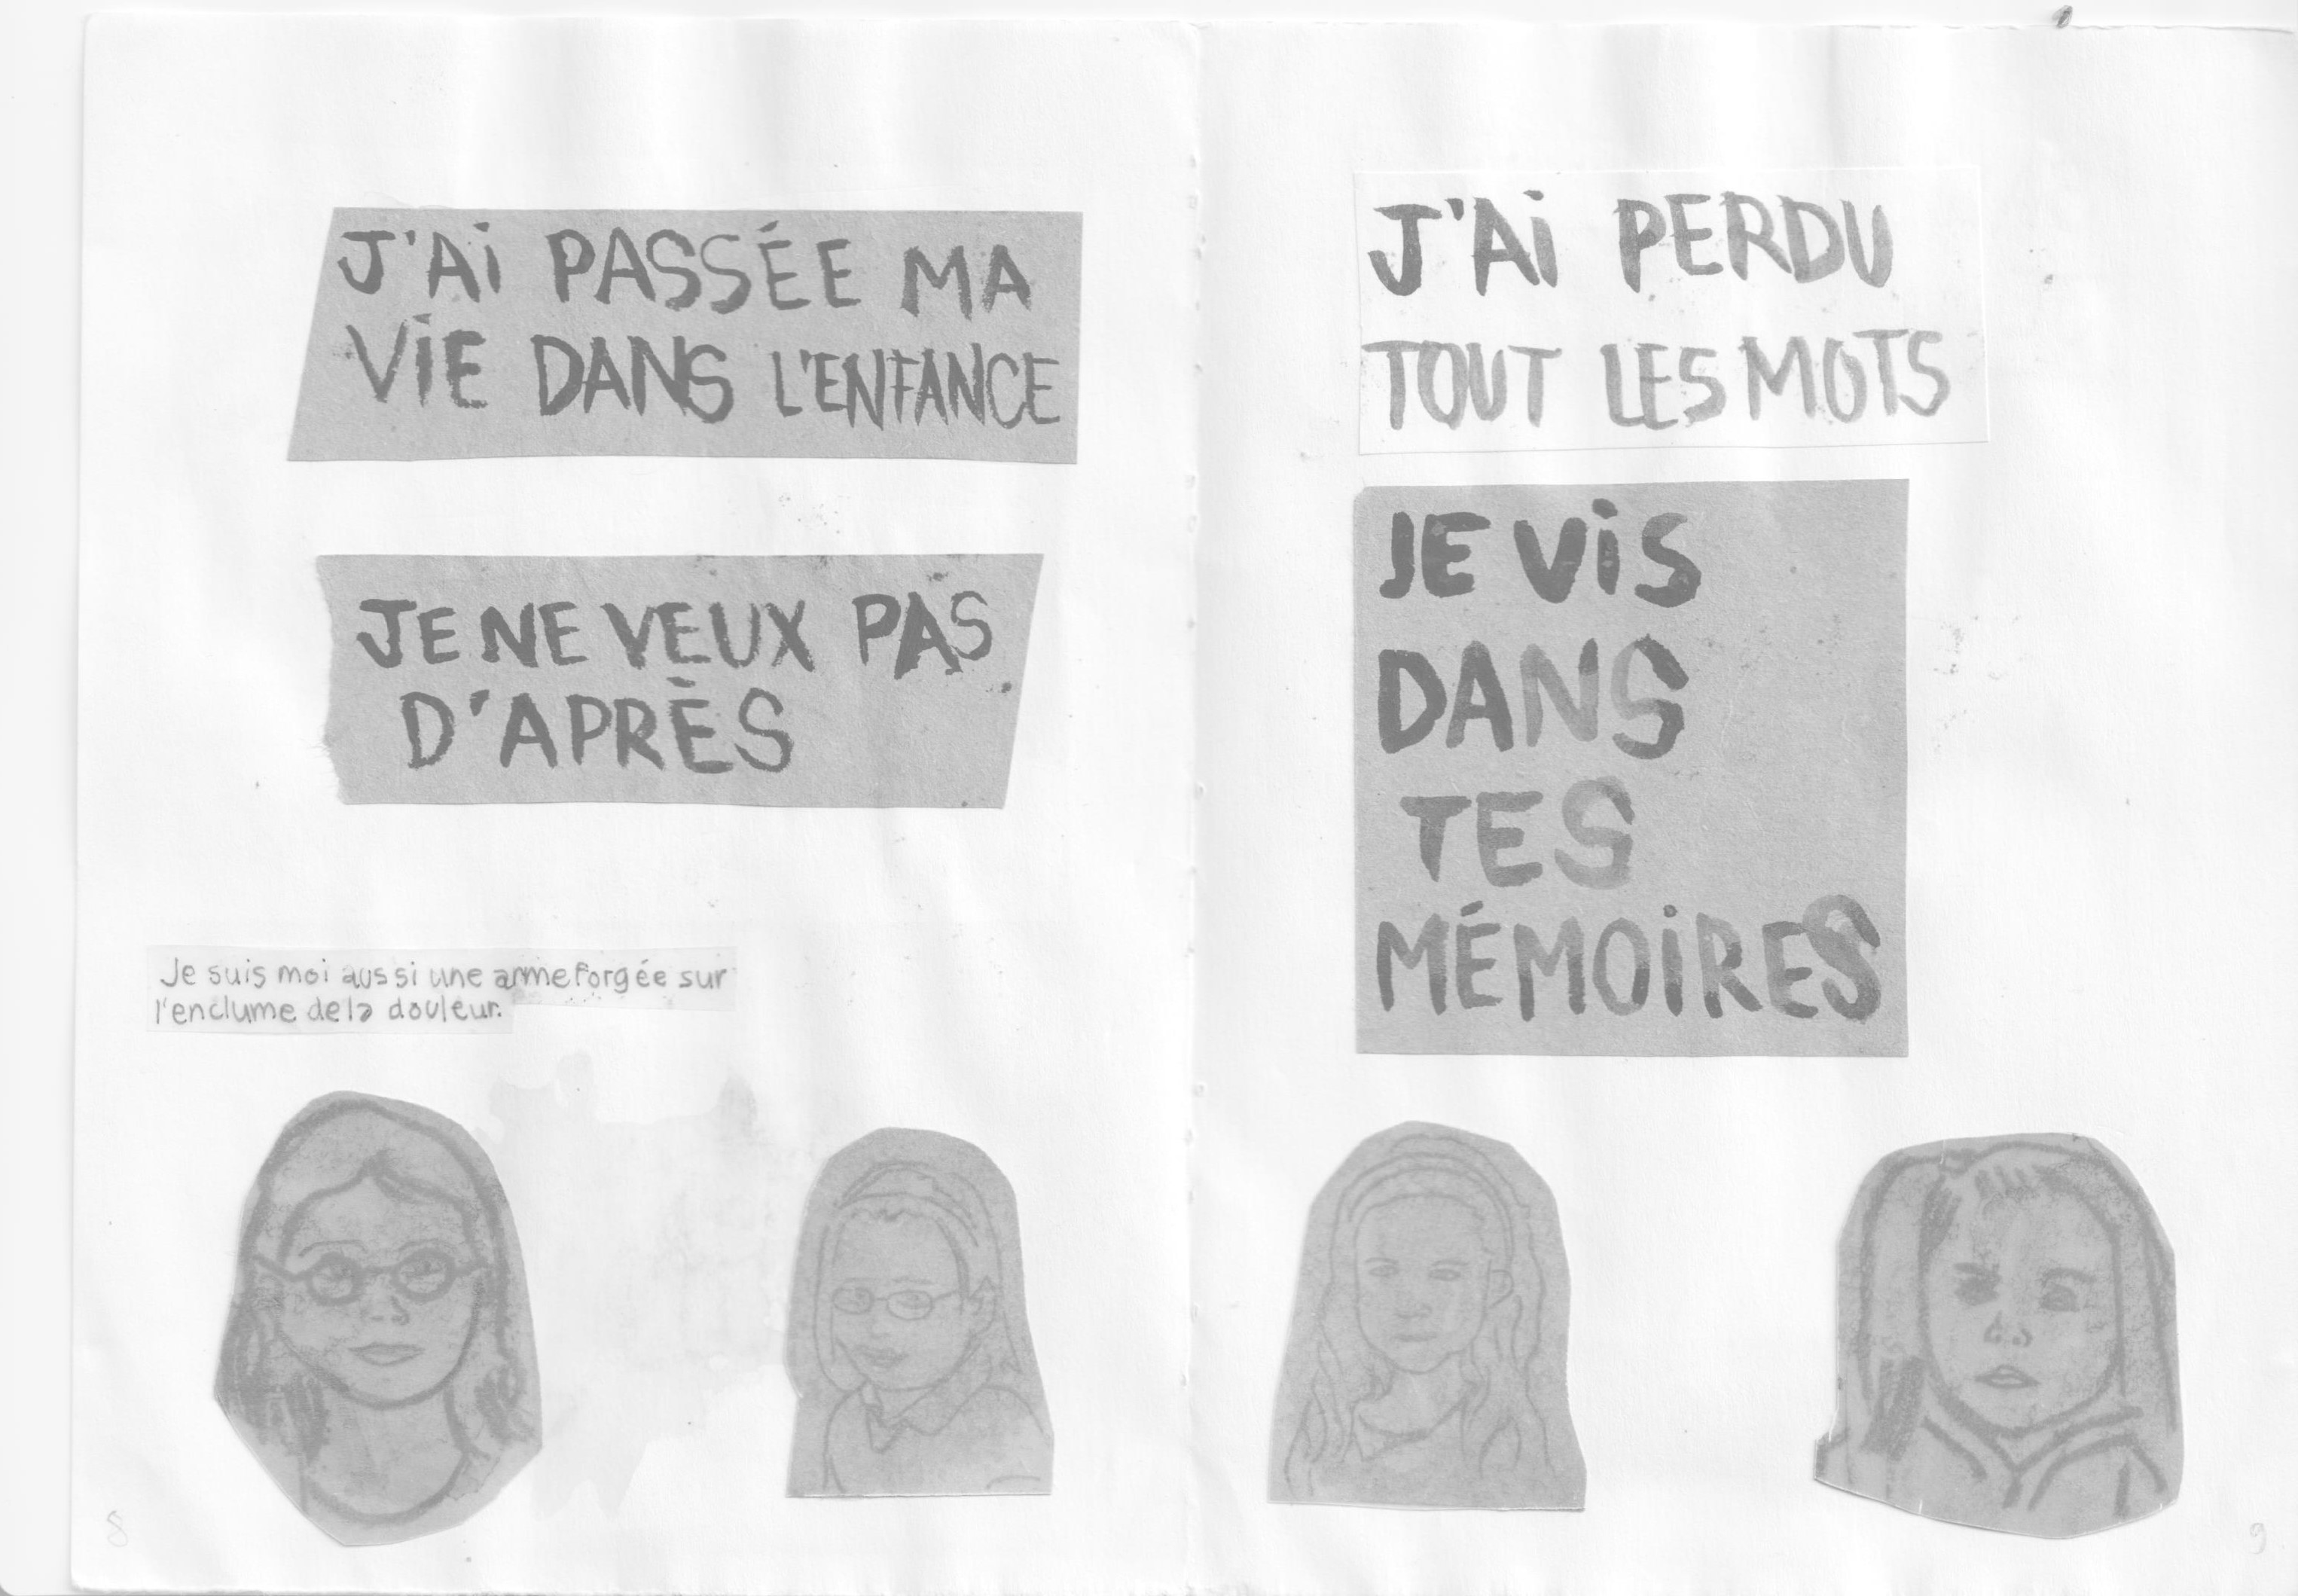 J'Ai PASSÉE MA
ViE DANS L'ENFANCE
JE NE VEUX PAS
D'APRÈS
Je suis moi aussi une arme forgée sur
l'enclume de la douleur.
8
J'Ai PERDU
TOUT LES MOTS
JE ViS
DANS
TES
MÉMOiRES
9